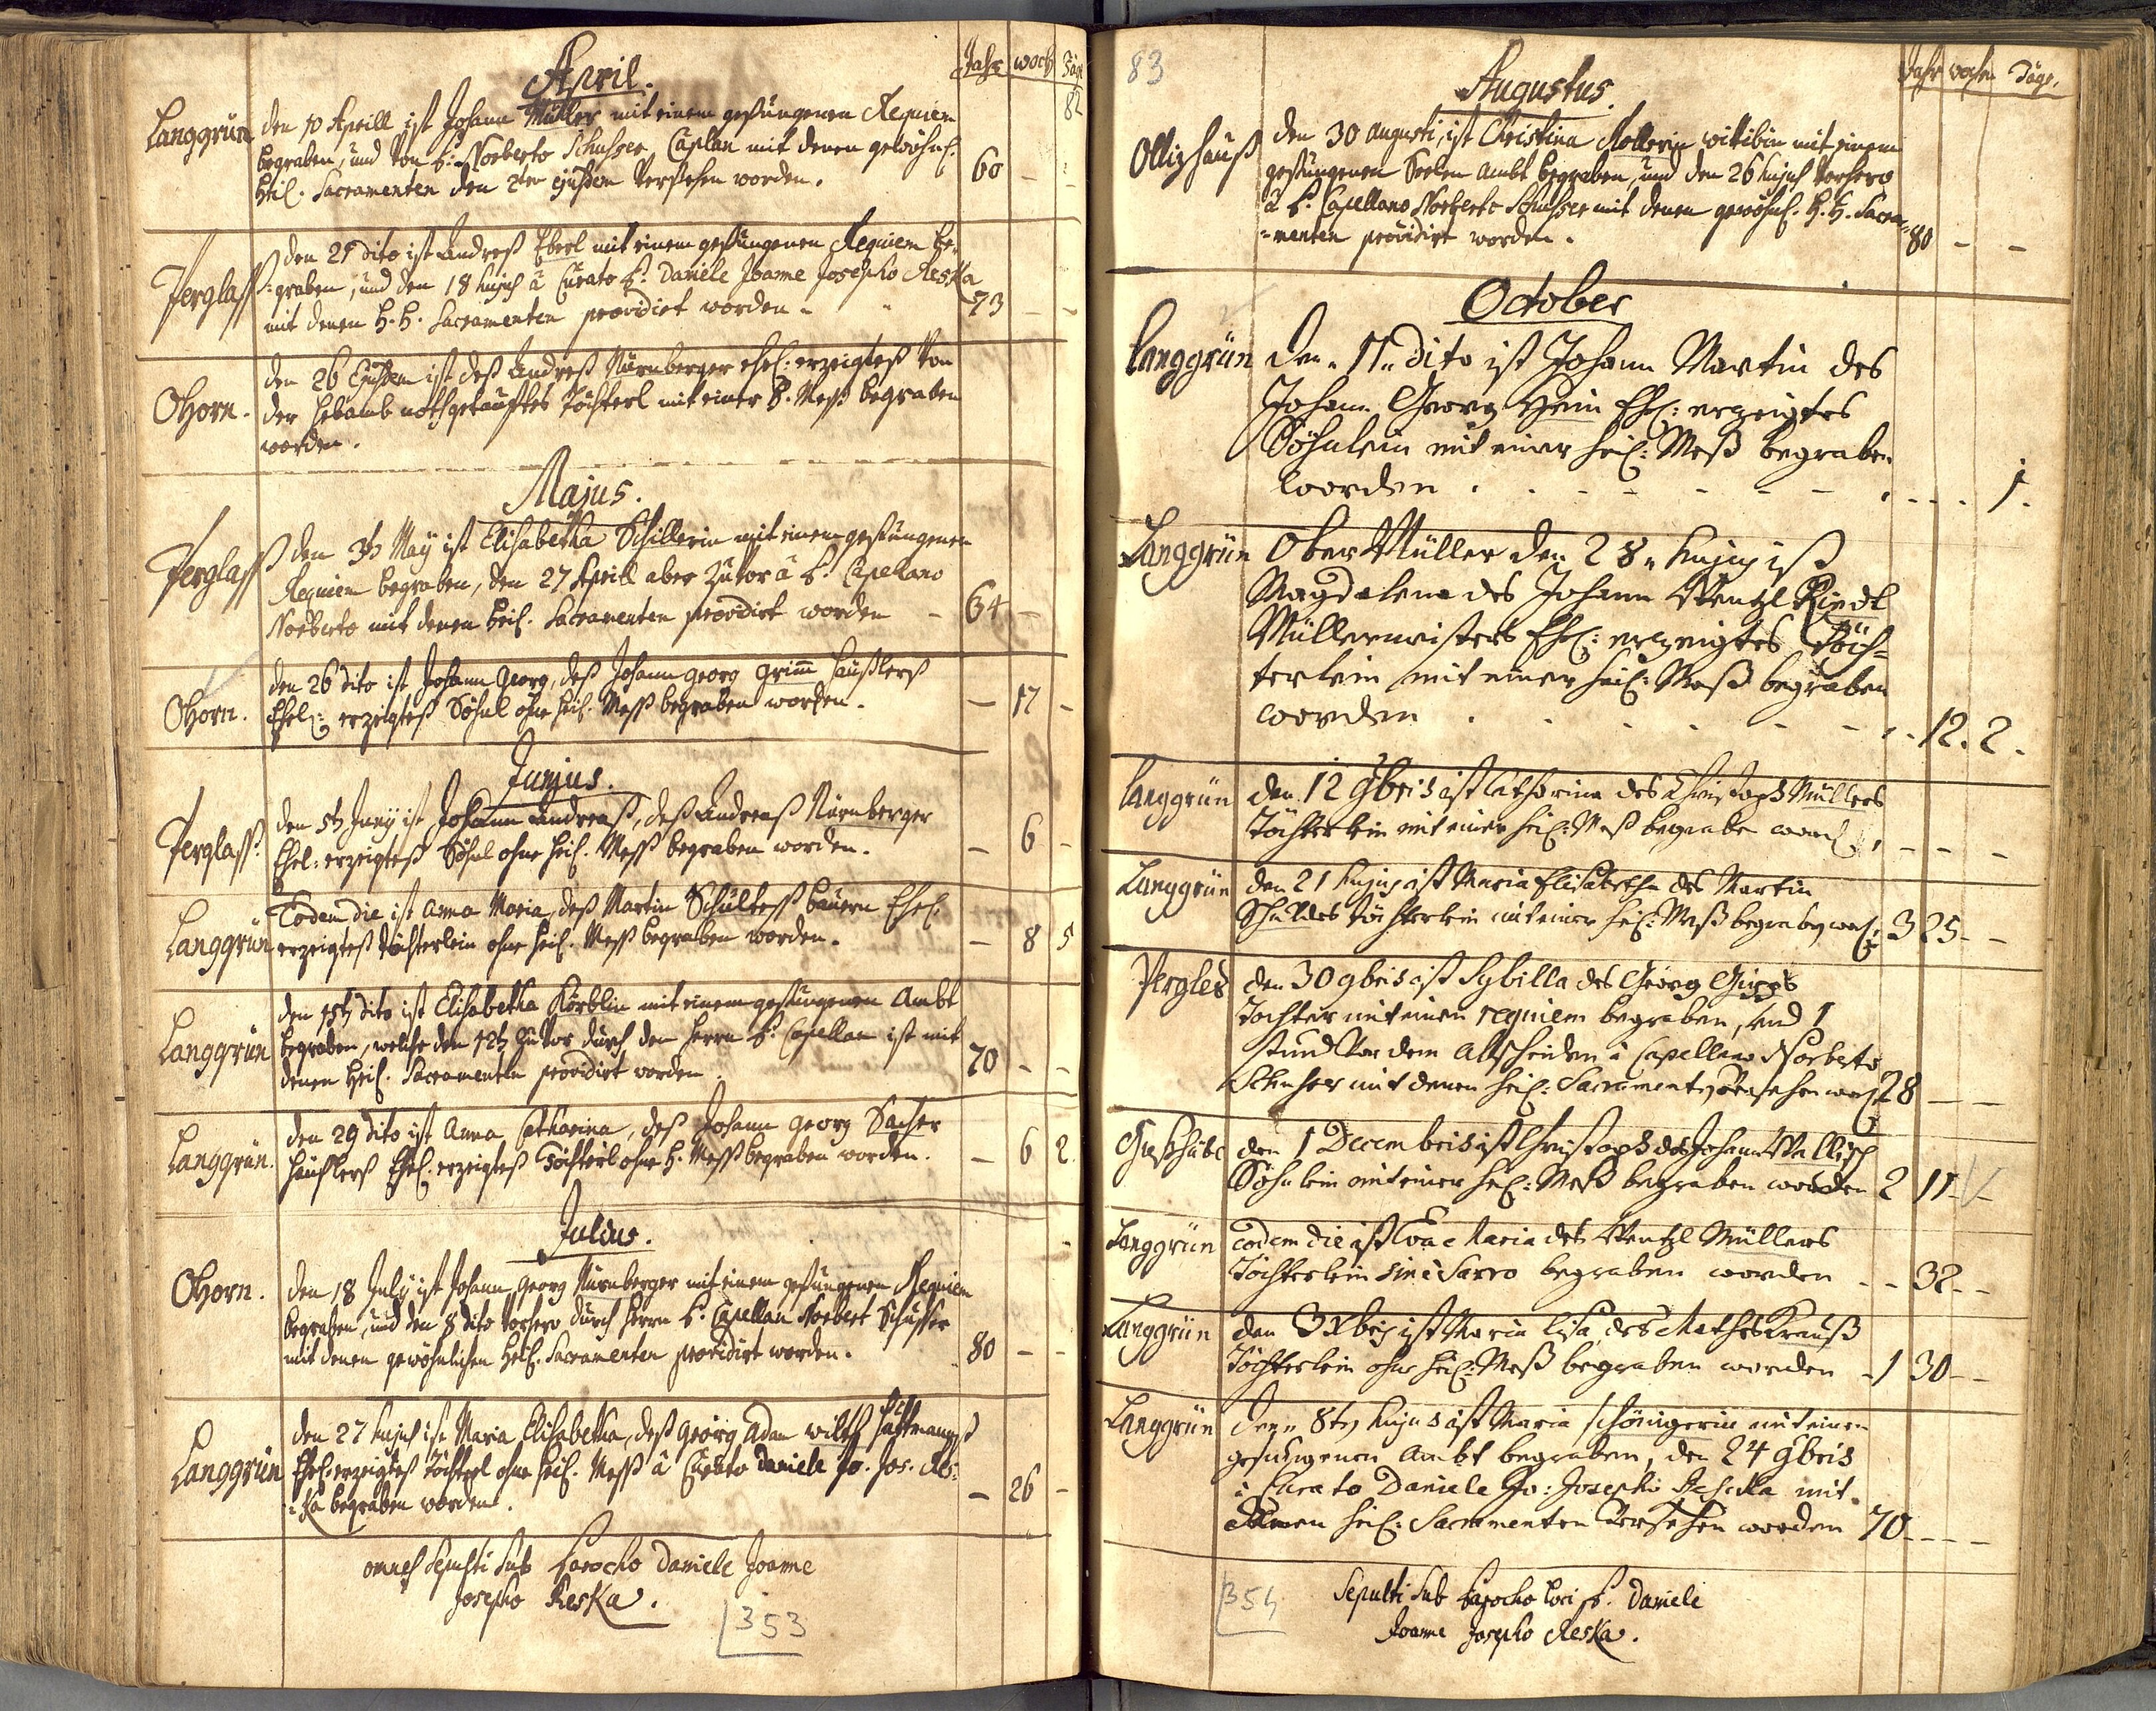 April.
Jahr woch Täg
82
Langgrün den 10 Aprill ist Johann Müller mit einem gesungenen Requiem
begraben, und von P. Norberto Schusser Caplan mit denen gewöhnl.
heil. Sacramenten den 2ten ejusdem versehen worden. 60 - -
Perglaß den 21 dito ist Andreß Eberl mit einem gesungenen Requiem be-
graben, und den 18 hujus â Curato P. Daniele Joanne Josepho Reska
mit denen H. H. Sacramenten providirt worden. 73 - -
Ohorn. den 26 Ejusdem ist deß Andreß Nürnberger ehel: erzeigteß von
der hebamb nothgetaufftes Töchterl mit einer H. Meß begraben
worden.
Majus.
Perglaß den 3t May ist Elisabetha Schillerin mit einem gesungenen
Requiem begraben, den 27 Aprill aber zuvor â P. Capellano
Norberto mit denen heil. Sacramenten providirt worden - 64 -
Ohorn. den 26 dito ist Johann Georg, deß Johann georg Grim̅ häußlerß
Ehel: erzeigteß Söhnl ohne heil. Meß begraben worden. - 17 -
Junius.
Perglaß. den 5t Juny ist Johann Andreaß, deß Andreaß Nürnberger
Ehel: erzeigteß Söhnl ohne heil. Meß begraben worden. - 6 -
Langgrün Eodem die ist Anna Maria, deß Martin Schulteß bauern Ehel.
erzeigteß Töchterlein ohne heil. Meß begraben worden. - 8 5
Langgrün den 15t dito ist Elisabetha Körblin mit einem gesungenen Ambt
begraben, welche den 12t zuvor durch den herrn P. Capellan ist mit
denen heil. Sacramenten providirt worden. 70 - -
Langgrün. den 29 dito ist Anna Catharina, deß Johann georg Sacher
häußlerß Ehel. erzeigteß Töchterl ohne H. Meß begraben worden. - 6 2
Julius.
Ohorn. den 18 July ist Johann Georg Nürnberger mit einem gesungenen Requiem
begraben, und den 8 dito vorhero durch herrn P. Capellan Norbert Schusser
mit denen gewöhnlichen heil. Sacramenten providirt worden. 80 - -
Langgrün den 27 hujus ist Maria Elisabetha, deß Georg Adam wilth
Ehel. erzeigteß Töchterl ohne heil. Meß â Curato Daniele Jo. Jos. Res-
ka begraben worden. - 26 -
omnes sepulti sub Parocho Daniele Joanne
Josepho Reska.
353
83
Augustus.
Jahr wochen Täge.
Ollizhauß den 30 Augusti, ist Christina Kollerin wittibin mit einem
gesungenen Seelen Ambt begraben, und den 26 hujus vorhero
â P. Capellano Norberto Schusser mit denen gewöhnl. H. H. Sacra-
-menten providirt worden. 80 - -
October
Langgrün Den 11 dito ist Johann Martin des
Johann Georg Heim Ehel: erzeigtes
Söhnlein mit einer heil: Meß begraben
worden . - - - - - 1.
Langgrün Ober Müller den 28 hujus ist
Magdalena des Johann Wentzl Riedl
Müllermeisters Ehel: erzeigtes Töch-
terlein mit einer heil: Meß begraben
worden . - - - 12. 2.
Langgrün den 12 9bris ist Catharina des Christoph Müllers
Töchterlein mit einer heil: Meß begraben - - -
Langgrün den 21 hujus ist Maria Elisabetha des Martin
Schuldes Töchterlein mit einer heil: Meß begraben 3 25 - -
Pergles den 30 9bris ist Sybilla des Georg
Tochter mit einen requiem begraben, und 1
stund vor dem Abscheiden â Capellano Norberto
Schusser mit denen heil: Sacramenten versehen 28 - -
Gießhübl den 1 Decembris ist Christoph des Johann Wallisch
Söhnlein mit einer heil: Meß begraben worden 2 11 -
Langgrün Eodem die ist Eva Maria des Wentzl Müllers
Töchterlein sine Sacro begraben worden - - 32 - -
Langgrün den 3 Xbris ist Maria Lisa, des Mathes Krauß
Töchterlein ohne heil: Meß begraben worden - 1 30 - -
Langgrün den 8ten hujus ist Maria Schönigerin mit einen
gesungenen Ambt begraben, den 24 9bris
â Curato Daniele Jo: Josepho Reschka mit
denen heil: Sacramenten versehen worden 70 - - -
354
Sepulti sub Parocho loci P. Daniele
Joanne Josepho Reska.